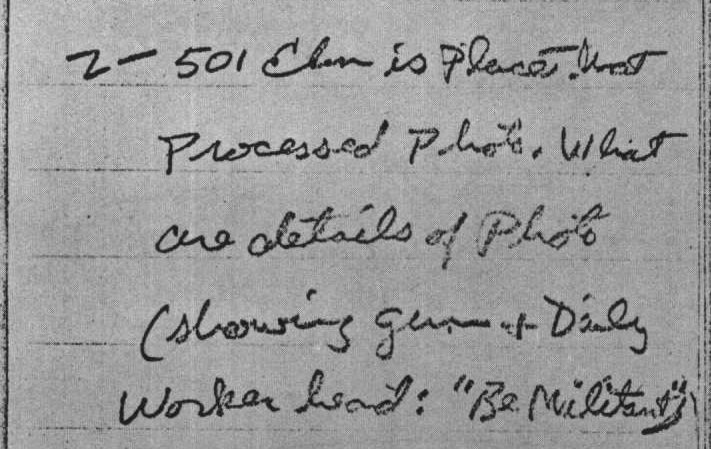 2 - 501 Elm is Place that
Processed Photo. What
are details of Photo
(showing gun + Daily
Worker head: "Be Militant")